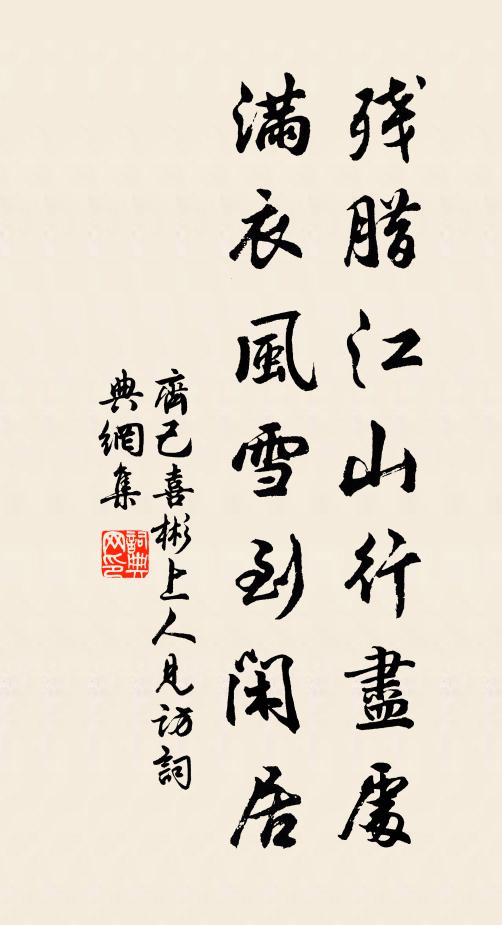 残腊江山行盡處
滿衣風雪到閑居
齊己喜彬上人見訪詞
典網集
詞典
网印